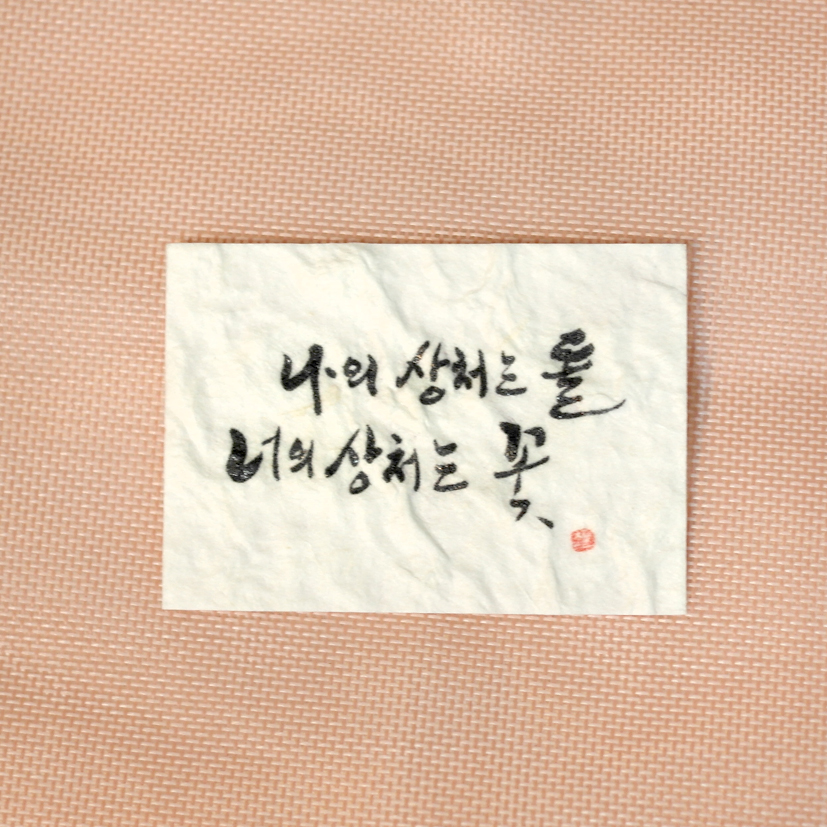 나의 상처는 돌
너의 상처는 꽃